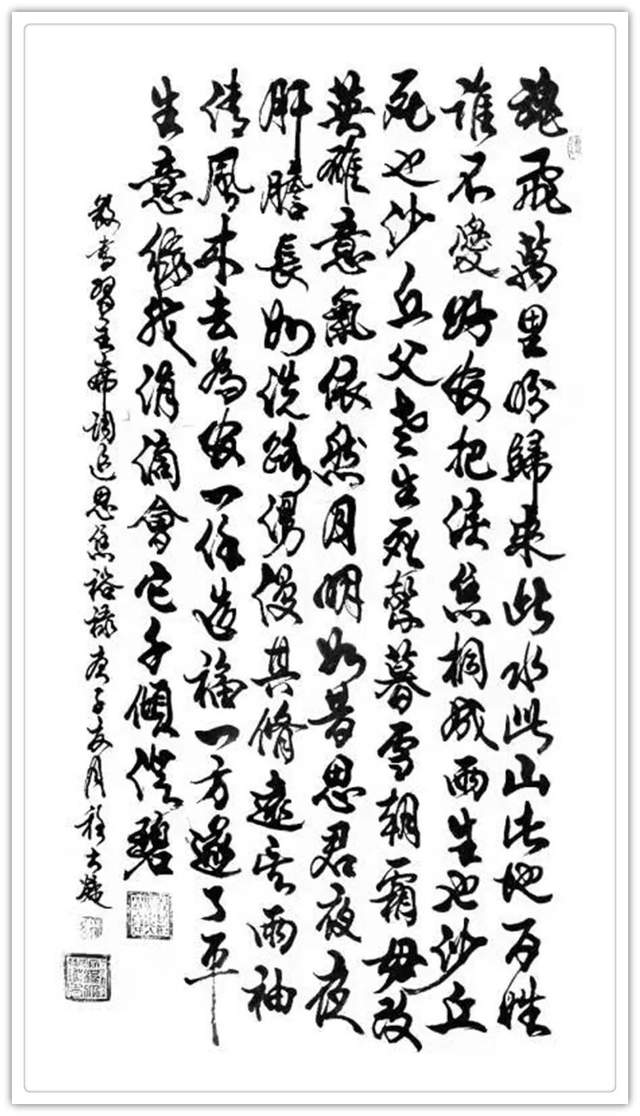 魂飛萬里盼歸來此水此山此地百姓
誰不愛好官把淚焦桐成雨生也沙丘
死也沙丘父老生死繫暮雪朝霜毋改
英雄意氣依然月明如昔思君夜夜
肝膽長如洗路漫漫其脩遠矣兩袖
清風來去為官一任造福一方遂了平
生意綠我涓滴會它千傾澄碧
敬書習主席詞追思焦裕祿庚子夏月程